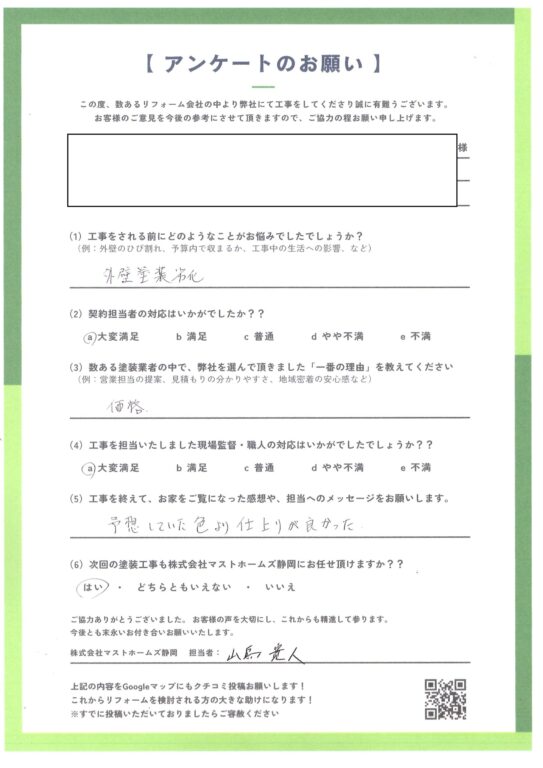 【 アンケートのお願い 】
この度、数あるリフォーム会社の中より弊社にて工事をしてくださり誠に有難うございます。
お客様のご意見を今後の参考にさせて頂きますので、ご協力の程お願い申し上げます。
様
(1) 工事をされる前にどのようなことがお悩みでしたでしょうか？
(例：外壁のひび割れ、予算内で収まるか、工事中の生活への影響、など)
外壁塗装劣化
(2) 契約担当者の対応はいかがでしたか？？
a 大変満足 b 満足 c 普通 d やや不満 e 不満
(3) 数ある塗装業者の中で、弊社を選んで頂きました「一番の理由」を教えてください
(例：営業担当の提案、見積もりの分かりやすさ、地域密着の安心感など)
価格
(4) 工事を担当いたしました現場監督・職人の対応はいかがでしたでしょうか？？
a 大変満足 b 満足 c 普通 d やや不満 e 不満
(5) 工事を終えて、お家をご覧になった感想や、担当へのメッセージをお願いします。
予想していた色より仕上りが良かった.
(6) 次回の塗装工事も株式会社マストホームズ静岡にお任せ頂けますか？？
はい ・ どちらともいえない ・ いいえ
ご協力ありがとうございました。お客様の声を大切にし、これからも精進して参ります。
今後とも末永いお付き合いお願いいたします。
株式会社マストホームズ静岡 担当者： 人
上記の内容をGoogleマップにもクチコミ投稿お願いします！
これからリフォームを検討される方の大きな助けになります！
※すでに投稿いただいておりましたらご容赦ください